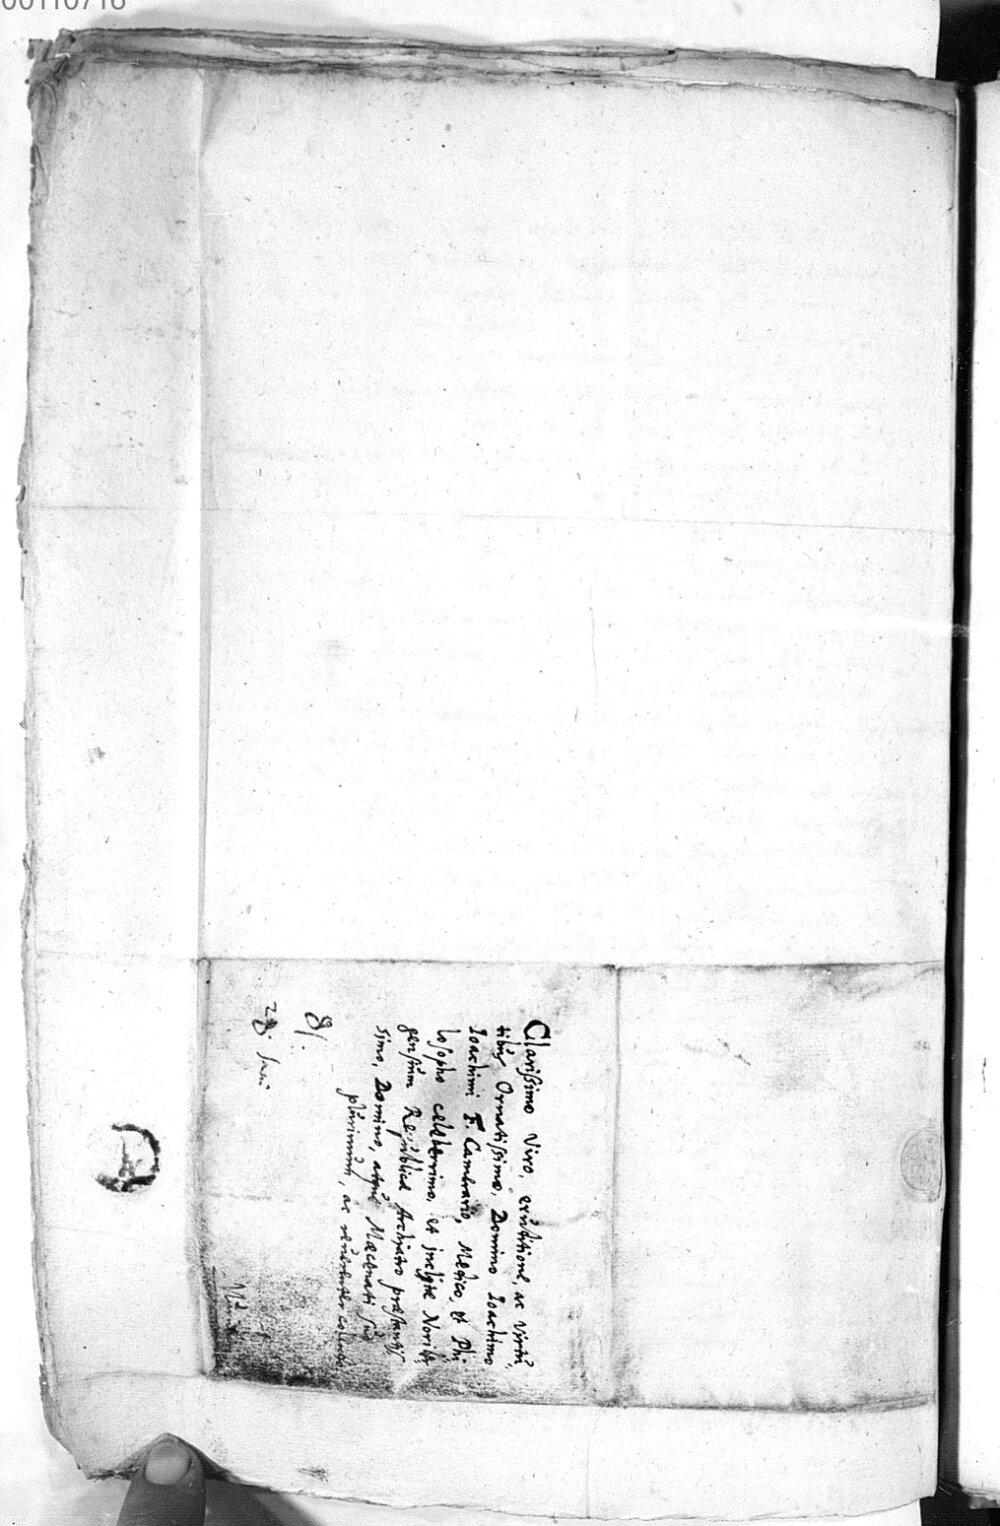 00110716
Clarissimo Viro, eruditione, ac virtu,
tibus Ornatissimo, Domino Ioachimo
Ioachimi F. Camerario, Medico, et Phi
losopho celeberrimo, et inclytæ Norib,
gensium Reipublicæ Archiatro præstantis
simo, Domino, atque Mæcenati suo
plurimum, ac reverenter colendo
81.
28.